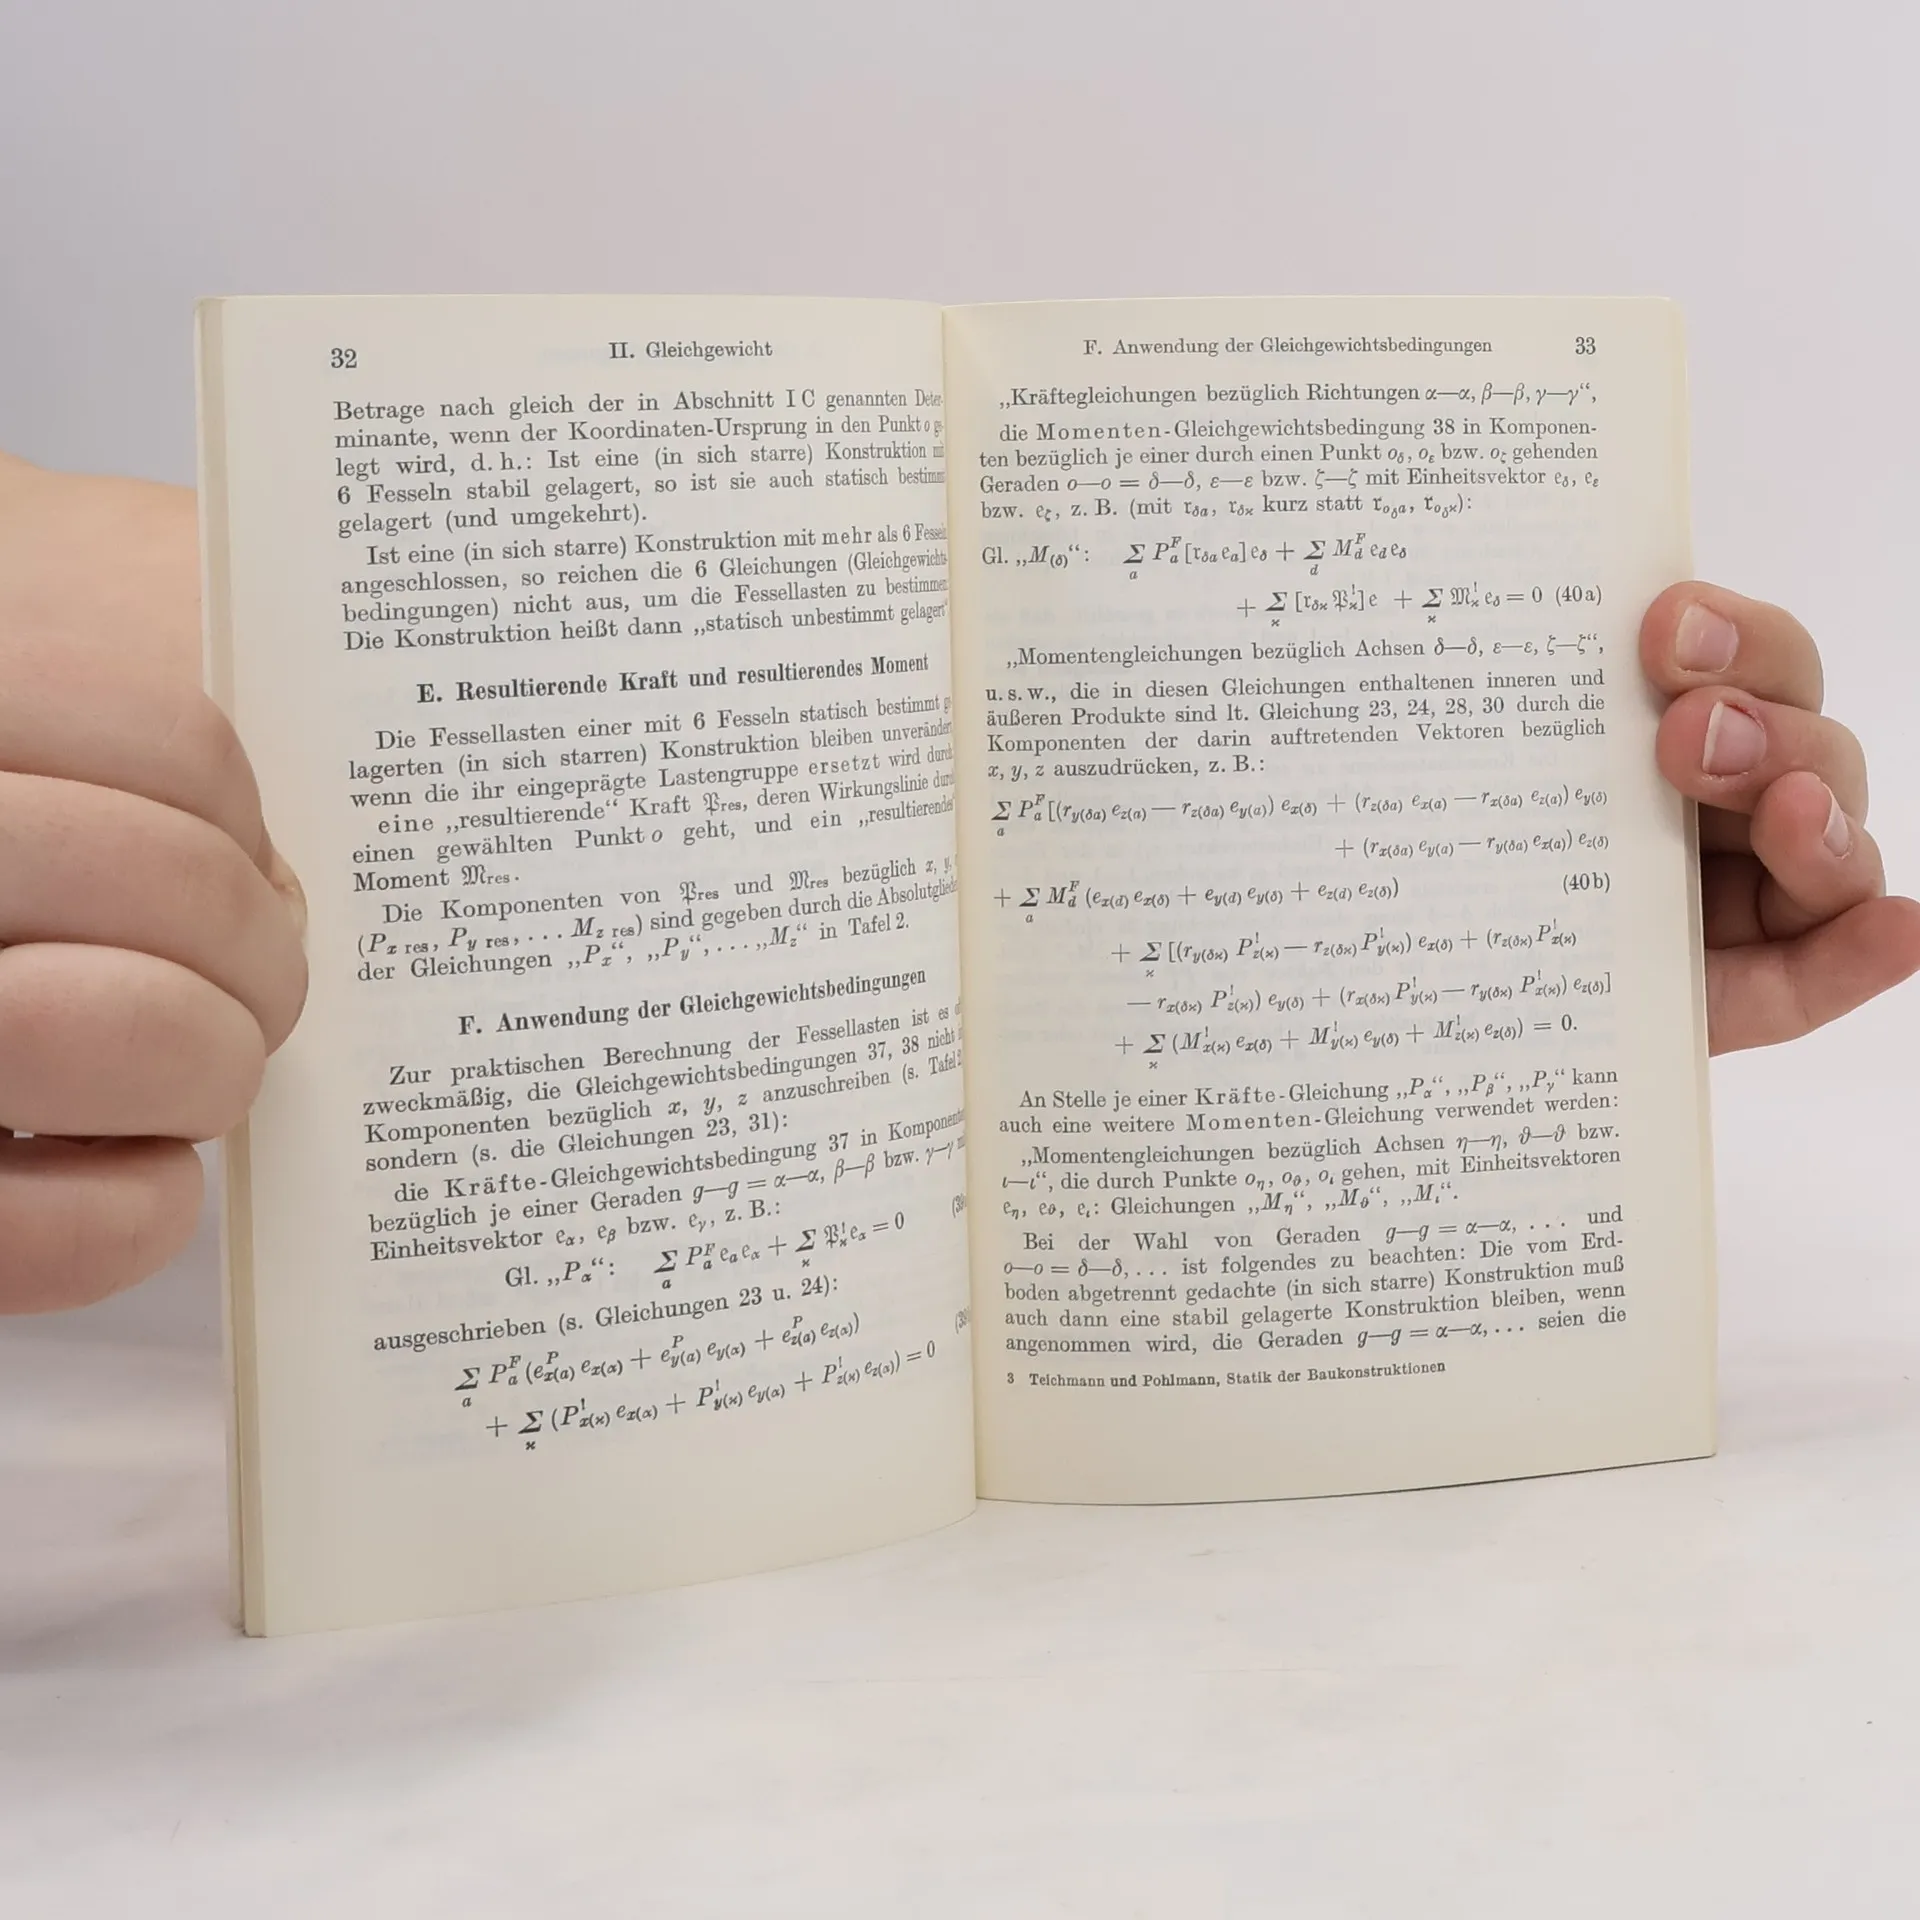 32
II. Gleichgewicht
Betrage nach gleich der in Abschnitt I C genannten Deter-
minante, wenn der Koordinaten-Ursprung in den Punkt o ge-
legt wird, d. h.: Ist eine (in sich starre) Konstruktion mit
6 Fesseln stabil gelagert, so ist sie auch statisch bestimmt
gelagert (und umgekehrt).
Ist eine (in sich starre) Konstruktion mit mehr als 6 Fesseln
angeschlossen, so reichen die 6 Gleichungen (Gleichgewichts-
bedingungen) nicht aus, um die Fessellasten zu bestimmen.
Die Konstruktion heißt dann „statisch unbestimmt gelagert“
E. Resultierende Kraft und resultierendes Moment
Die Fessellasten einer mit 6 Fesseln statisch bestimmt
lagerten (in sich starren) Konstruktion bleiben unverändert
wenn die ihr eingeprägte Lastengruppe ersetzt wird durch
eine „resultierende“ Kraft 𝔓res, deren Wirkungslinie durch
einen gewählten Punkt o geht, und ein „resultierendes“
Moment 𝔐res.
Die Komponenten von 𝔓res und 𝔐res bezüglich x, y,
(Px res, Py res, . . . Mz res) sind gegeben durch die Absolutglieder
der Gleichungen „Px“, „Py“, . . . „Mz“ in Tafel 2.
F. Anwendung der Gleichgewichtsbedingungen
Zur praktischen Berechnung der Fessellasten ist es
zweckmäßig, die Gleichgewichtsbedingungen 37, 38 nicht
Komponenten bezüglich x, y, z anzuschreiben (s. Tafel 2
sondern (s. die Gleichungen 23, 31):
die Kräfte-Gleichgewichtsbedingung 37 in Komponenten
bezüglich je einer Geraden g—g = α—α, β—β bzw. γ—γ
Einheitsvektor eα, eβ bzw. eγ, z. B.:
Gl. „Pα“: Σa PaF ea eα + Σϰ 𝔓ϰ! eα = 0
ausgeschrieben (s. Gleichungen 23 u. 24):
Σa PaF (ex(a)P ex(α) + ey(a)P ey(α) + ez(a)P ez(α))
+ Σϰ (Px(ϰ)! ex(α) + Py(ϰ)! ey(α) + Pz(ϰ)! ez(α)) = 0
F. Anwendung der Gleichgewichtsbedingungen
33
„Kräftegleichungen bezüglich Richtungen α—α, β—β, γ—γ“,
die Momenten-Gleichgewichtsbedingung 38 in Komponen-
ten bezüglich je einer durch einen Punkt oδ, oε bzw. oζ gehenden
Geraden o—o = δ—δ, ε—ε bzw. ζ—ζ mit Einheitsvektor eδ, eε
bzw. eζ, z. B. (mit rδa, rδϰ kurz statt roδa, roδϰ):
Gl. „M(δ)“: Σa PaF [rδa ea] eδ + Σd MdF ed eδ
+ Σϰ [rδϰ 𝔓ϰ!] e + Σϰ 𝔐ϰ! eδ = 0 (40a)
„Momentengleichungen bezüglich Achsen δ—δ, ε—ε, ζ—ζ“,
u. s. w., die in diesen Gleichungen enthaltenen inneren und
äußeren Produkte sind lt. Gleichung 23, 24, 28, 30 durch die
Komponenten der darin auftretenden Vektoren bezüglich
x, y, z auszudrücken, z. B.:
Σa PaF [(ry(δa) ez(a) — rz(δa) ey(a)) ex(δ) + (rz(δa) ex(a) — rx(δa) ez(a)) ey(δ)
+ (rx(δa) ey(a) — ry(δa) ex(a)) ez(δ)
+ Σa MdF (ex(d) ex(δ) + ey(d) ey(δ) + ez(d) ez(δ)) (40b)
+ Σϰ [(ry(δϰ) Pz(ϰ)! — rz(δϰ) Py(ϰ)!) ex(δ) + (rz(δϰ) Px(ϰ)!
— rx(δϰ) Pz(ϰ)!) ey(δ) + (rx(δϰ) Py(ϰ)! — ry(δϰ) Px(ϰ)!) ez(δ)]
+ Σϰ (Mx(ϰ)! ex(δ) + My(ϰ)! ey(δ) + Mz(ϰ)! ez(δ)) = 0.
An Stelle je einer Kräfte-Gleichung „Pα“, „Pβ“, „Pγ“ kann
auch eine weitere Momenten-Gleichung verwendet werden:
„Momentengleichungen bezüglich Achsen η—η, ϑ—ϑ bzw.
ι—ι“, die durch Punkte oη, oϑ, oι gehen, mit Einheitsvektoren
eη, eϑ, eι: Gleichungen „Mη“, „Mϑ“, „Mι“.
Bei der Wahl von Geraden g—g = α—α, . . . und
o—o = δ—δ, . . . ist folgendes zu beachten: Die vom Erd-
boden abgetrennt gedachte (in sich starre) Konstruktion muß
auch dann eine stabil gelagerte Konstruktion bleiben, wenn
angenommen wird, die Geraden g—g = α—α, . . . seien die
3 Teichmann und Pohlmann, Statik der Baukonstruktionen